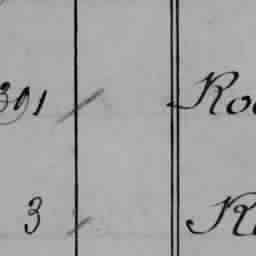 391 Ro
3 K